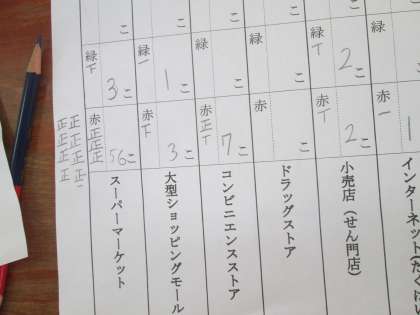 こ
こ
こ
こ
こ
緑 下 3こ
緑 一 1こ
緑 こ
緑 こ
緑 丅 2こ
緑
正正正正
正正正正一
赤 正正正 56こ
赤 下 3こ
赤 正丅 7こ
赤 こ
赤 丅 2こ
赤 一 1
スーパーマーケット
大型ショッピングモール
コンビニエンスストア
ドラッグストア
小売店(せん門店)
インターネット(たくは